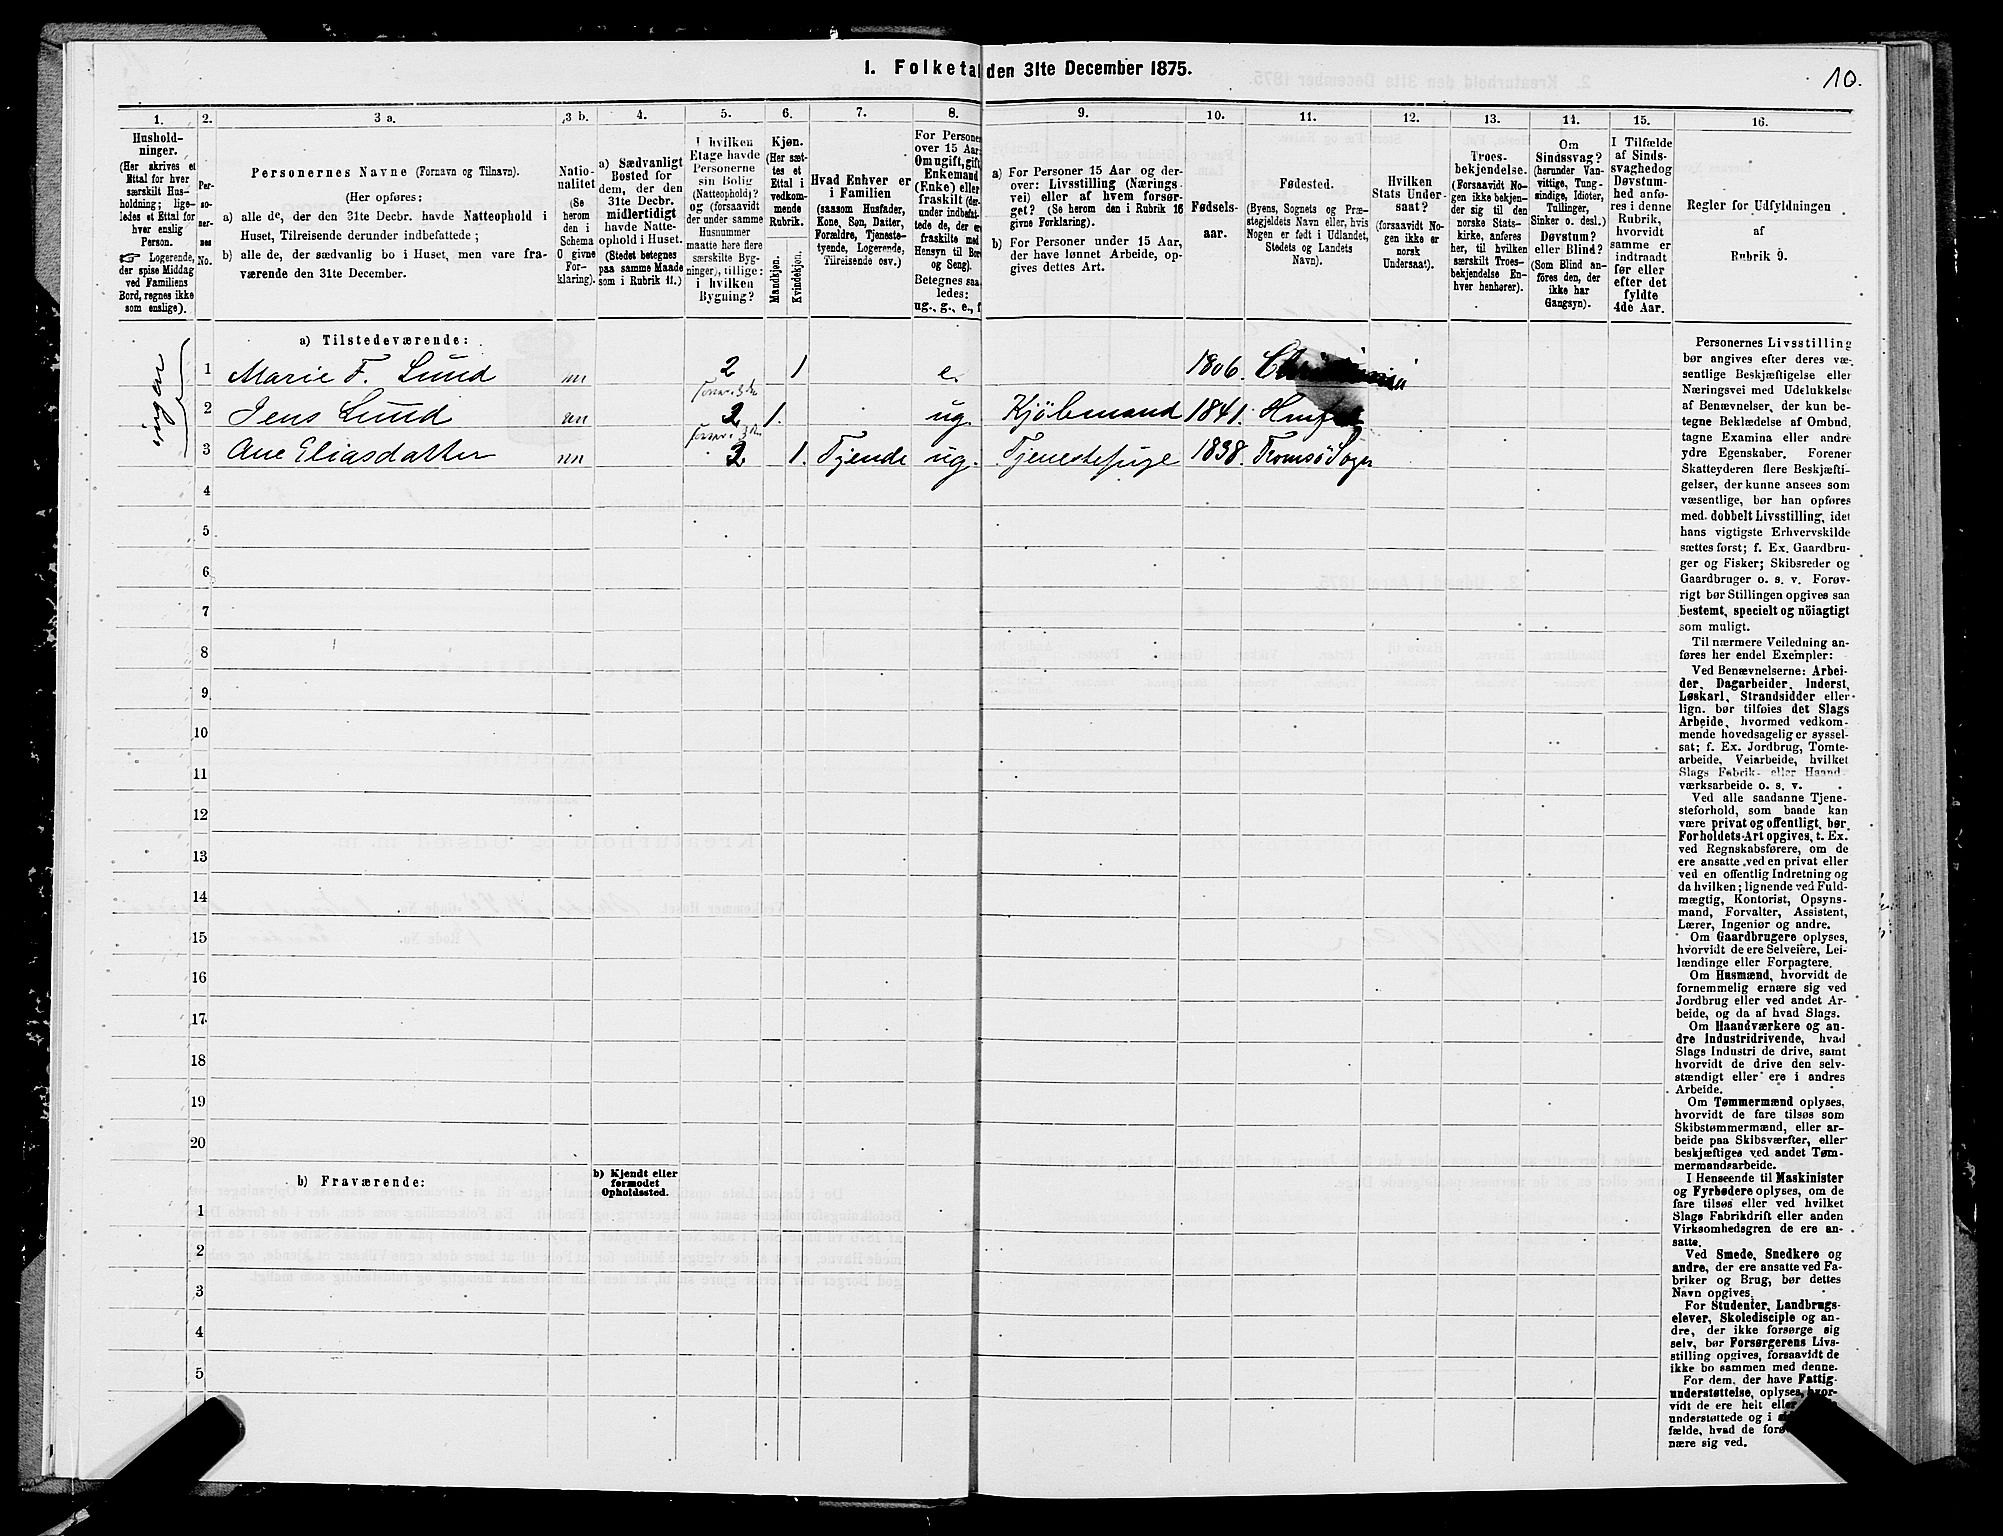 I. Folketal den 31te December 1875.
10.
1.
Hushold-
ninger.
(Her skrives et
Ettal for hver
særskilt Hus-
holdning; lige-
ledes et Ettal for
hver enslig
Person.
☞ Logerende,
der spise Middag
ved Familiens
Bord, regnes ikke
som enslige).
2.
Per-
so-
ner-
nes
No.
3 a.
Personernes Navne (Fornavn og Tilnavn).
(Her opføres:
a) alle de, der den 31te Decbr. havde Natteophold i
Huset, Tilreisende derunder indbefattede;
b) alle de, der sædvanlig bo i Huset, men vare fra-
værende den 31te December.
3 b.
Natio-
nalitet
(Se
herom
den i
Schema
O givne
For-
klaring).
4.
a) Sædvanligt
Bosted for
dem, der den
31te Decbr.
midlertidigt
havde Natte-
ophold i Huset.
(Stedet betegnes
paa samme Maade
som i Rubrik 11.)
5.
I hvilken
Etage havde
Personerne
sin Bolig
(Natteophold)?
og (forsaavidt
der under samme
Husnummer
maatte høre flere
særskilte Byg-
ninger), tillige:
i hvilken
Bygning?
6.
Kjøn.
(Her sæt-
tes et
Ettal i
vedkom-
mende
Rubrik.
Mandkjøn.
Kvindekjøn.
7.
Hvad Enhver er
i Familien
(saasom Husfader,
Kone, Søn, Datter,
Forældre, Tjeneste-
tyende, Logerende,
Tilreisende osv.)
8.
For Personer
over 15 Aar
Om ugift, gift,
Enkemand
(Enke) eller
fraskilt (der-
under indbefat-
tede de, der er
fraskilte med
Hensyn til Bord
og Seng).
Betegnes saa-
ledes:
ug., g., e., f.
9.
a) For Personer 15 Aar og der-
over: Livsstilling (Nærings-
vei) eller af hvem forsør-
get? (Se herom den i Rubrik 16
givne Forklaring).
b) For Personer under 15 Aar,
der have lønnet Arbeide, op-
gives dettes Art.
10.
Fødsels-
aar.
11.
Fødested.
(Byens, Sognets og Præ-
stegjeldets Navn eller, hvis
Nogen er født i Udlandet,
Stedets og Landets
Navn).
12.
Hvilken
Stats Under-
saat?
(forsaavidt No-
gen ikke er
norsk
Undersaat).
13.
Troes-
bekjendelse.
(Forsaavidt No-
gen ikke bekjen-
der sig til den
norske Stats-
kirke, anføres
her, til hvilken
særskilt Troes-
bekjendelse En-
hver henhører).
14.
Om
Sindssvag?
(herunder Van-
vittige, Tung-
sindige, Idioter,
Tullinger,
Sinker o. desl.)
Døvstum?
eller Blind?
(Som Blind an-
føres den, der
ikke har
Gangsyn).
15.
I Tilfælde
af Sinds-
svaghed og
Døvstum-
hed anfø-
res i denne
Rubrik,
hvorvidt
samme er
indtraadt
før eller
efter det
fyldte
4de Aar.
16.
Regler for Udfyldningen
af
Rubrik 9.
a) Tilstedeværende:
1 Marie F. Lund nn 2 1 e. 1806.
2 Jens Lund nn 2 1. ug Kjøbmand 1841.
3 Ane Eliasdatter nn 2 1. Tjende ug. Tjenestepige 1838. Tromsø Sogn
4
5
6
7
8
9
10
11
12
13
14
15
16
17
18
19
20
b) Fraværende:
b) Kjendt eller
formodet
Opholdssted.
1
2
3
4
5
Personernes Livsstilling
bør angives efter deres væ-
sentlige Beskjæftigelse eller
Næringsvei med Udelukkelse
af Benævnelser, der kun be-
tegne Beklædelse af Ombud,
tagne Examina eller andre
ydre Egenskaber. Forener
Skatteyderen flere Beskjæfti-
gelser, der kunne ansees som
væsentlige, bør han opføres
med dobbelt Livsstilling, idet
hans vigtigste Erhvervskilde
sættes først; f. Ex. Gaardbru-
ger og Fisker; Skibsreder og
Gaardbruger o. s. v. Forøv-
rigt bør Stillingen opgives saa
bestemt, specielt og nöiagtigt
som muligt.
Til nærmere Veiledning an-
føres her endel Exempler:
Ved Benævnelserne: Arbei-
der, Dagarbeider, Inderst,
Løskarl, Strandsidder eller
lign. bør tilføies det Slags
Arbeide, hvormed vedkom-
mende hovedsagelig er syssel-
sat; f. Ex. Jordbrug, Tomte-
arbeide, Veiarbeide, hvilket
Slags Fabrik- eller Haand-
værksarbeide o. s. v.
Ved alle saadanne Tjene-
steforhold, som baade kan
være privat og offentligt, bør
Forholdets Art opgives, t. Ex.
ved Regnskabsførere, om de
ere ansatte ved en privat eller
ved en offentlig Indretning og
da hvilken; lignende ved Fuld-
mægtig, Kontorist, Opsyns-
mand, Forvalter, Assistent,
Lærer, Ingeniør og andre.
Om Gaardbrugere oplyses,
hvorvidt de ere Selveiere, Lei-
lændinge eller Forpagtere.
Om Husmænd, hvorvidt de
fornemmelig ernære sig ved
Jordbrug eller ved andet Ar-
beide, og da af hvad Slags.
Om Haandværkere og an-
dre Industridrivende, hvad
Slags Industri de drive, samt
hvorvidt de drive den selv-
stændigt eller ere i andres
Arbeide.
Om Tømmermænd oplyses,
hvorvidt de fare tilsøs som
Skibstømmermænd, eller ar-
beide paa Skibsværfter, eller
beskjæftiges ved andet Tøm-
mermandsarbeide.
I Henseende til Maskinister
og Fyrbødere oplyses, om de
fare tilsøs eller ved hvilket
Slags Fabrikdrift eller anden
Virksomhedsgren de ere an-
satte.
Ved Smede, Snedkere og
andre, der ere ansatte ved Fa-
briker og Brug, bør dettes
Navn opgives.
For Studenter, Landbrugs-
elever, Skoledisciple og an-
dre, der ikke forsørge sig
selv, bør Forsørgerens Livs-
stilling opgives, forsaavidt de
ikke bo sammen med denne.
For dem, der have Fattig-
understøttelse, oplyses, hvor-
vidt de ere helt eller
understøttede og i
fælde, hvad de
nære sig ved.